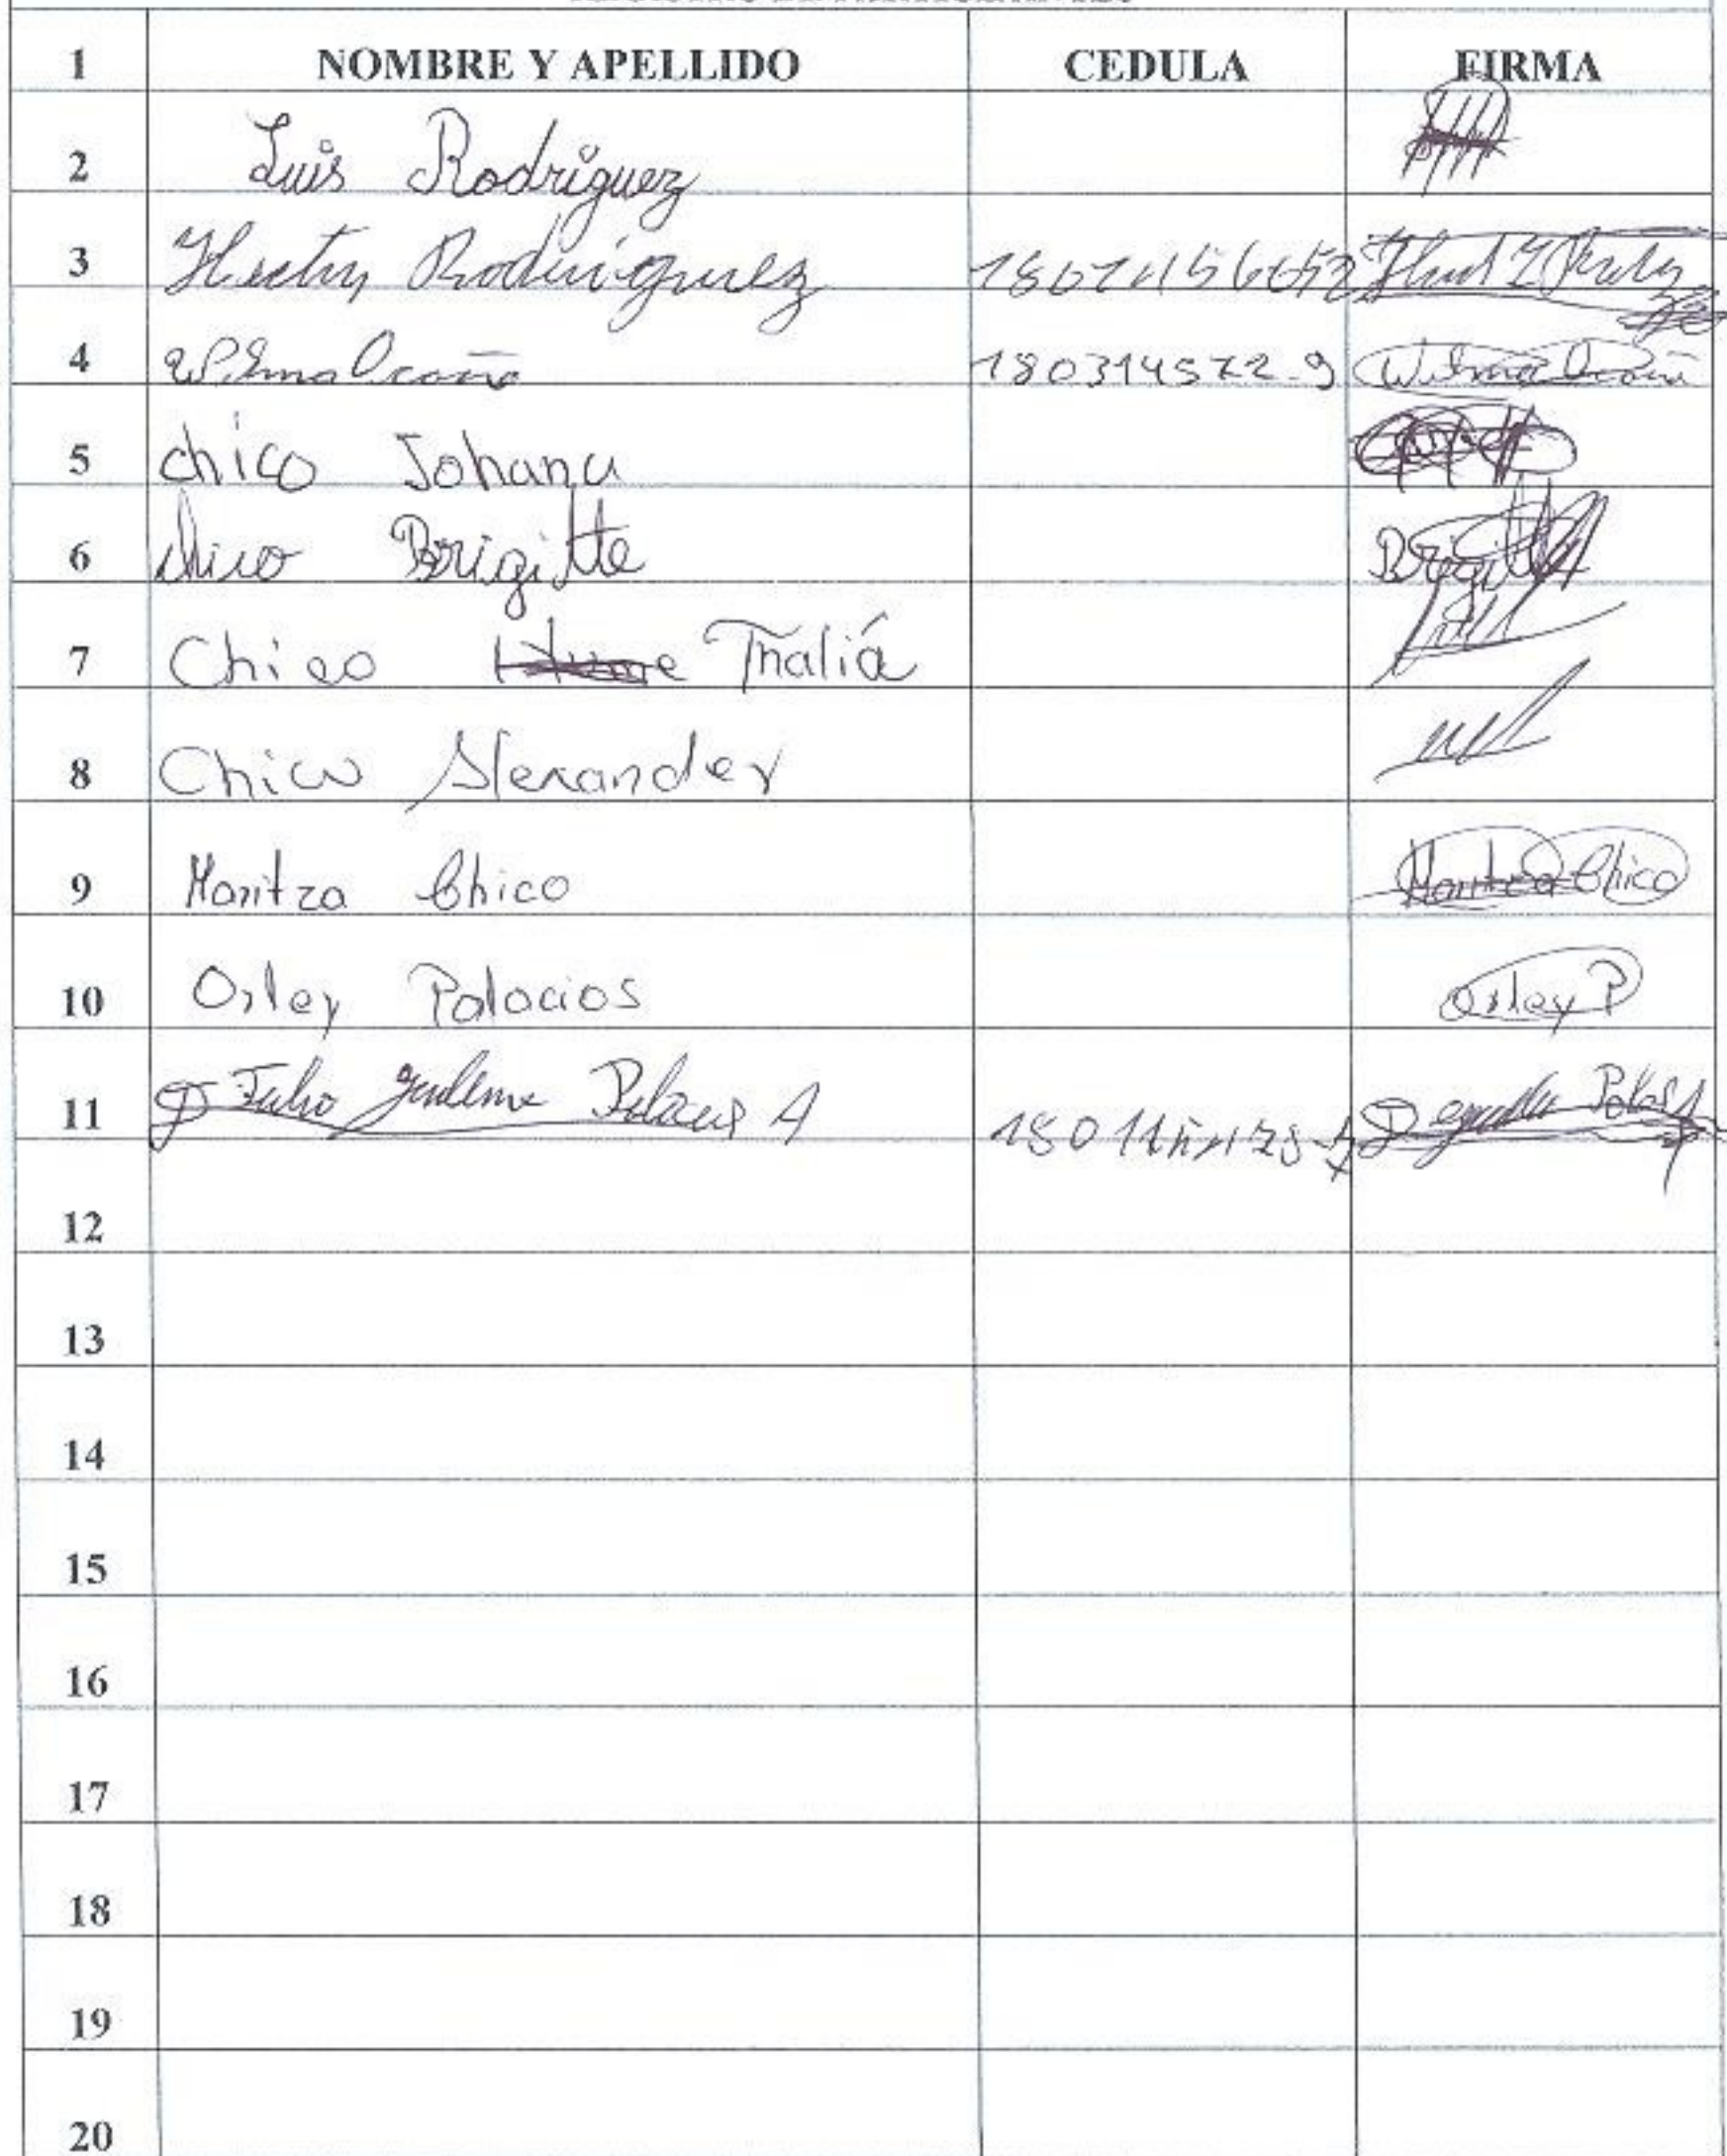 1 NOMBRE Y APELLIDO CEDULA FIRMA
2 Luis Rodriguez
3 Hector Rodriguez
4 Wilma Ocaña 180314572-9 Wilma Ocaña
5 chico Johana
6 chico Brigitte Brigitte
7 Chico Thaliá
8 Chico Alexander
9 Maritza Chico Maritza Chico
10 Orley Palacios Orley P
11 Palacios A
12
13
14
15
16
17
18
19
20